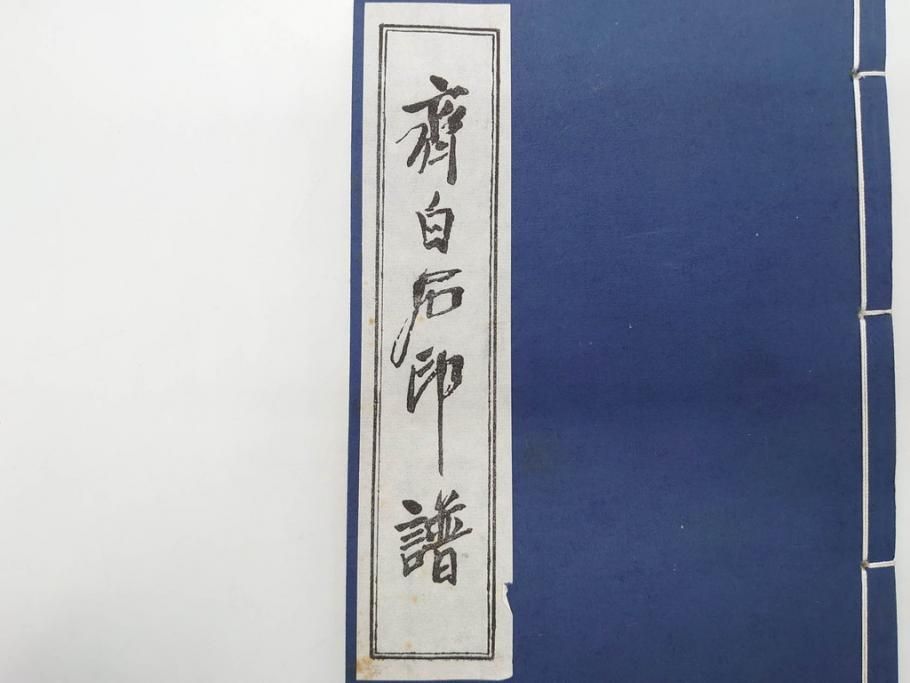 齊白石印譜